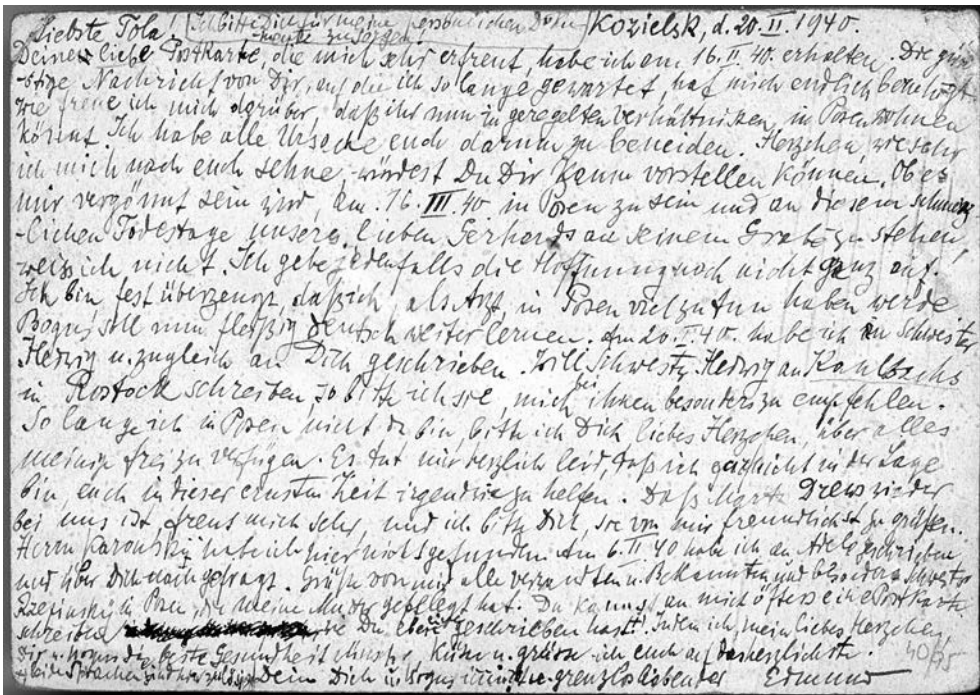 Liebste Tola! Ich bitte Dich für meine persönlichen Doku- Kozielsk, d. 20. II. 1940.
mente zu sorgen!
Deine liebe Postkarte, die mich sehr erfreut, habe ich am 16. II. 40. erhalten. Die gün-
-stige Nachricht von Dir, auf die ich so lange gewartet, hat mich endlich beruhigt
wie freue ich mich darüber, daß ihr nun in geregelten Verhältnissen in Posen wohnen
könnt. Ich habe alle Ursache euch darum zu beneiden. Herzchen, wie sehr
ich mich nach euch sehne, würdest Du Dir kaum vorstellen können. Ob es
mir vergönnt sein wird, am 16. III. 40. in Posen zu sein und an diesem schmerz-
-lichen Todestage unseres lieben Gerhards an seinem Grabe zu stehen,
weiss ich nicht. Ich gebe jedenfalls die Hoffnung noch nicht ganz auf.
Ich bin fest überzeugt, daß ich, als Arzt, in Posen viel zu tun haben werde
soll nun fleißig deutsch weiter lernen. Am 20. I. 40. habe ich an Schwester
Hedwig u. zugleich an Dich geschrieben. Will Schwester Hedwig an
in Rostock schreiben, so bitte ich sie, mich bei ihnen besonders zu empfehlen.
So lange ich in Posen nicht da bin, bitte ich Dich liebes Herzchen, über alles
meinige frei zu verfügen. Es tut mir herzlich leid, daß ich gar nicht in der Lage
bin, euch in dieser ernsten Zeit irgendwie zu helfen. Daß Drews wieder
bei uns ist, freut mich sehr, und ich bitte Dich, sie von mir freundlichst zu grüßen.
Herrn habe ich hier nicht gefunden. Am 6. II. 40 habe ich an Adele geschrieben
und über Dich nachgefragt. Grüße von mir alle Verwandten u. Bekannten und besonders Schwester
in Posen, die meine Mutter gepflegt hat. Du kannst an mich öfters eine Postkarte
schreiben wie Du eben geschrieben hast! Indem ich, mein liebes Herzchen,
Dir u. die beste Gesundheit wünsche, küsse u. grüsse ich euch auf das herzlichste.
Dein Dich u. grenzlos liebender Edmund
40/75